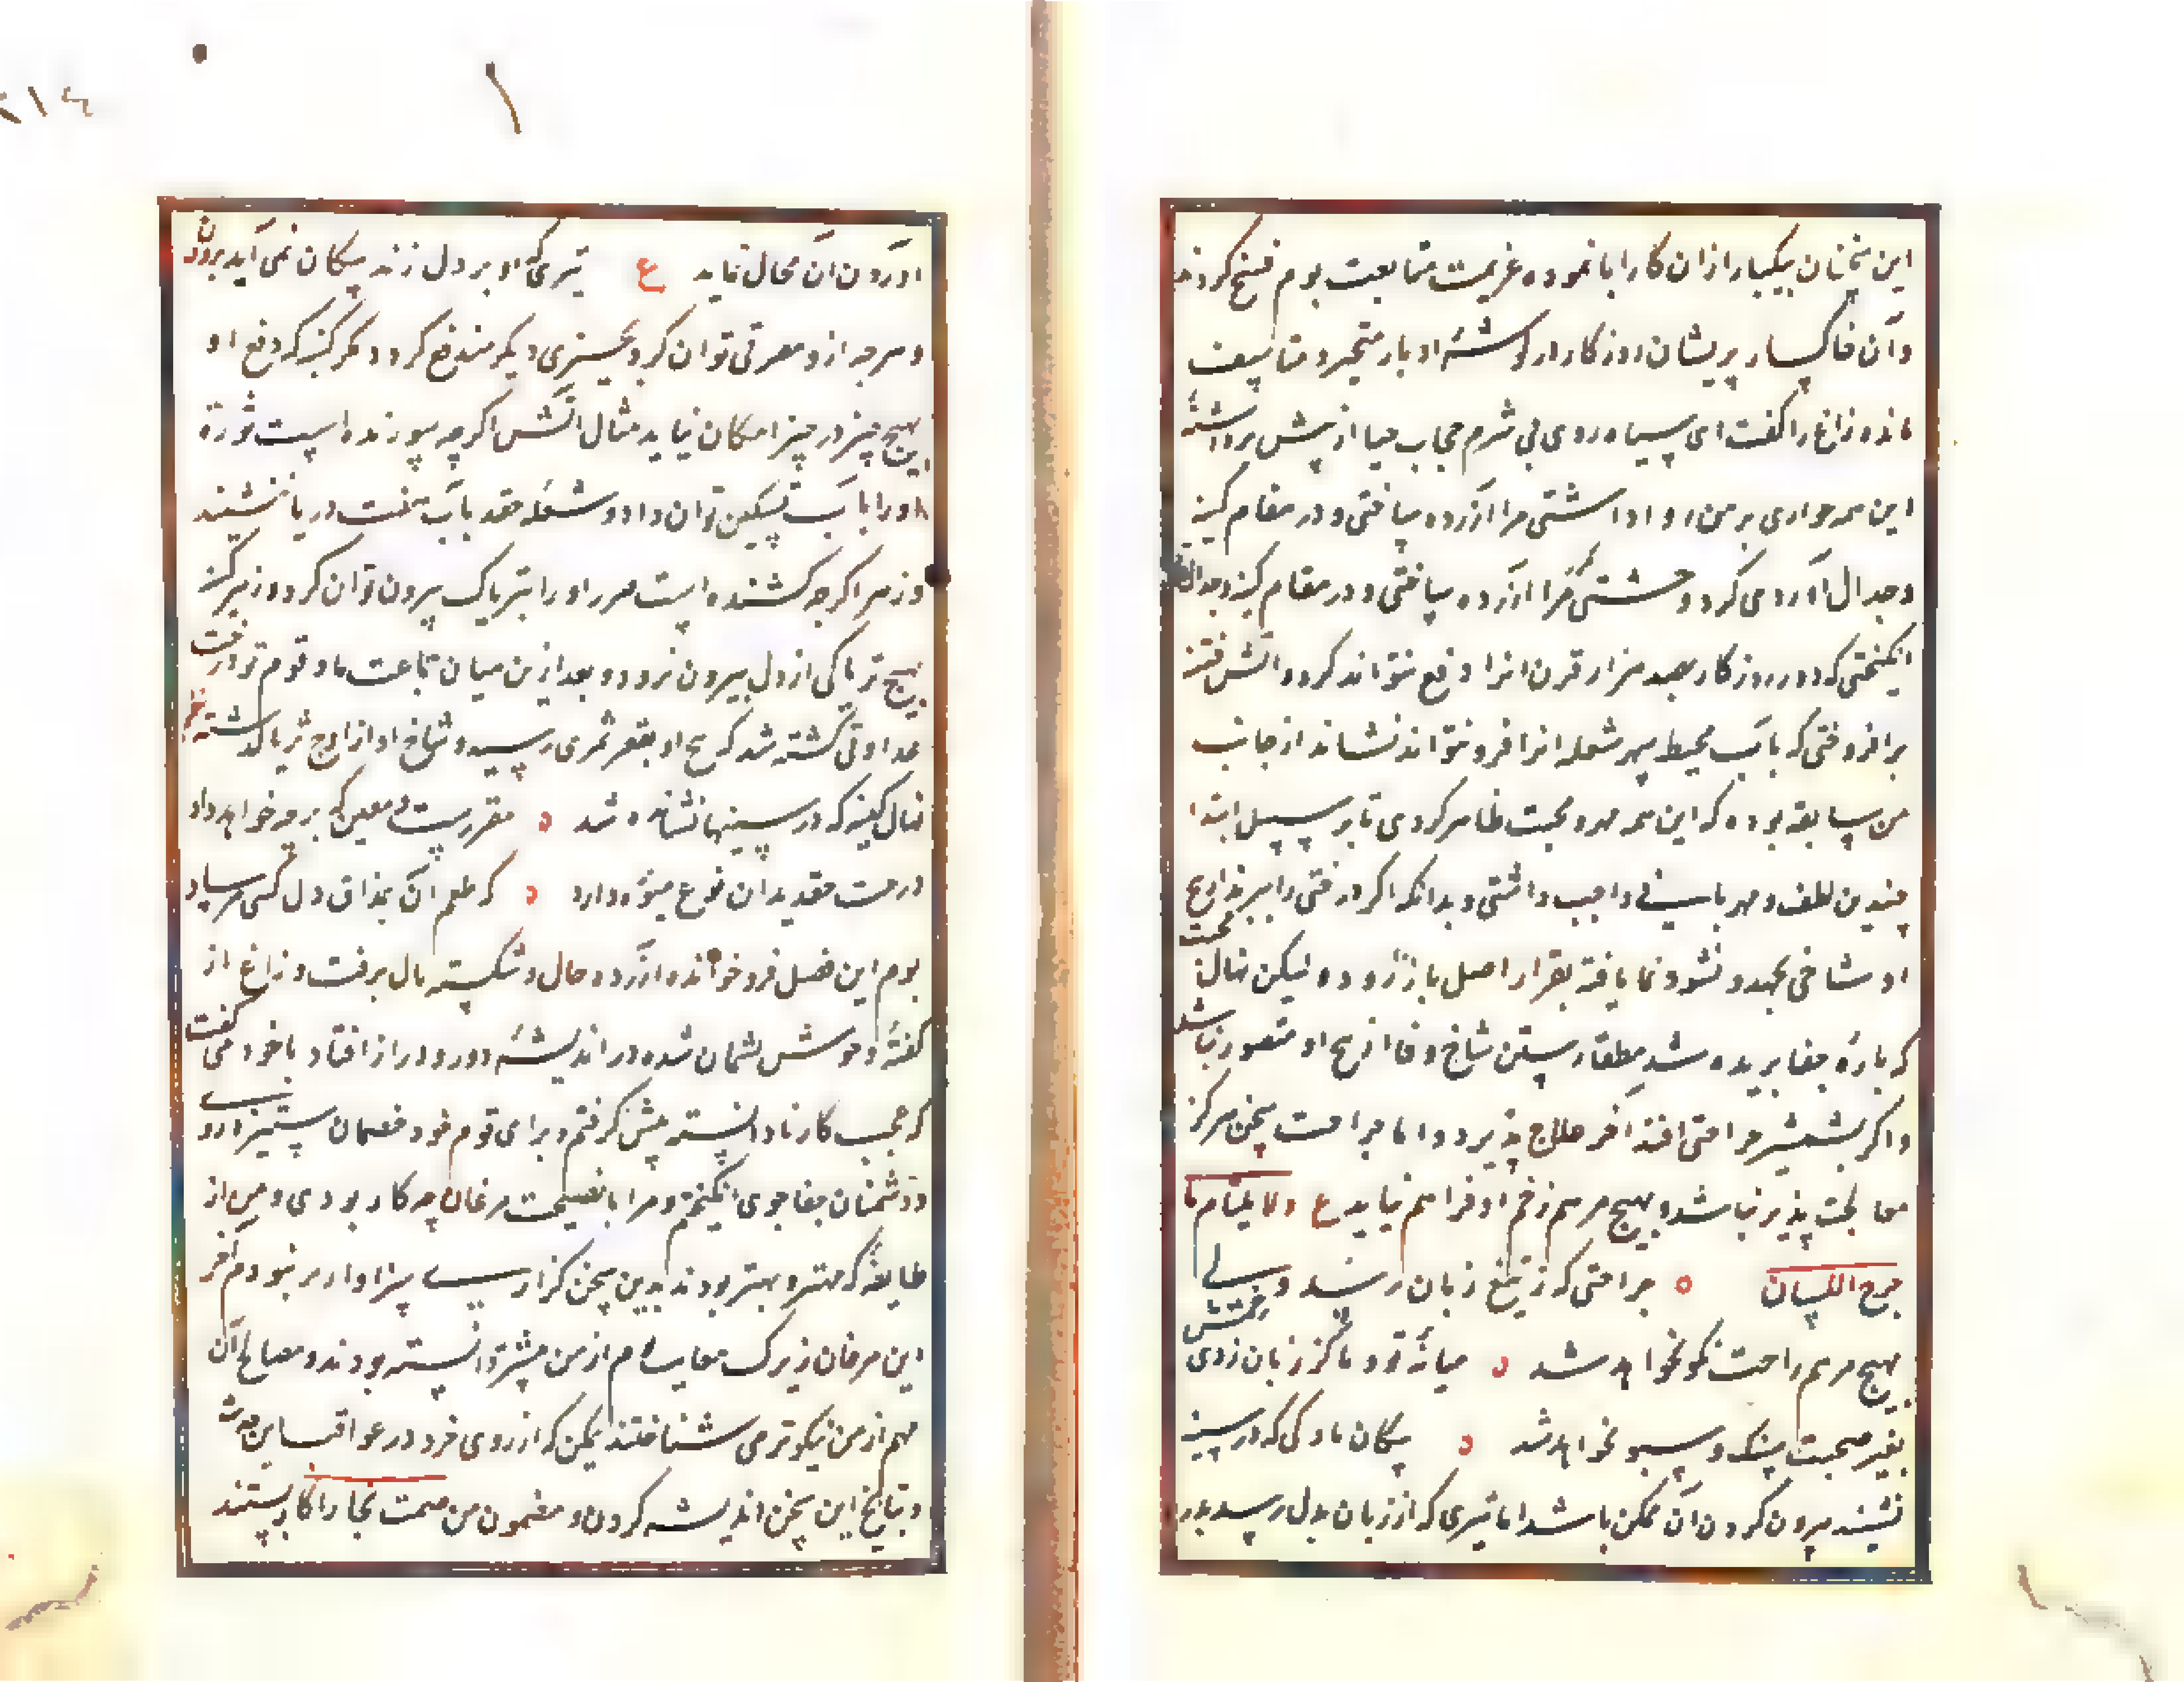 این سخنان بیکبار از ان کار ابا نموده عزیمت متابعت بوم فسخ کردند
وآن خاکسار پریشان روزکار در کوشهٔ ادبار متحیر و متاسف
مانده زاغ را کفت ای سیاه روی بی شرم حجاب حیا از پیش برداشتهٔ
این همه خواری بر من روا داشتی مرا آزرده ساختی و در مقام کینه
وجدال آورده کرد وحشتی مرا آزرده ساختی و در مقام کینه وجدال
انکیختی که دور روزکار بصد هزار قرن انرا دفع نتواند کرد و اتش فتنه
برافروختی که باب محیط سپهر شعله انرا فرو نتواند نشاند از جانب
من سابقه بوده که این همه مهر و محبت ظاهر کردی تا بر سبیل ابتدا
چندین لطف و مهربانی واجب داشتی و بدانکه اکر درختی را ببرند از بیخ
او شاخی بجهد و نشو و نما یافته بقرار اصل باز رود لیکن نهال محبت
که باره جفا بریده شد مطلقا رستن شاخ وفا از بیخ او متصور نباشد
واکر بشمشیر جراحتی افتد آخر علاج پذیرد و اما جراحت سخن هرکز
معالجت پذیر نباشد و بهیچ مرهم زخم او فراهم نیاید ع ولا یلتام ما
جرح اللسان جراحتی که ز تیغ زبان رسد و بی
بهیچ مرهم راحت نکو نخواهد شد میانهٔ تو و ما کز زبان زدی زخمش
بغیر صحبت سنک و سبو نخواهد شد پیکان ناوکی که در سینه
نشیند بیرون کردن آن ممکن باشد اما تیری که از زبان بدل رسد بدر
آوردن آن محال نماید ع تیری که او بر دل زند پیکان نمی آید برون
و هرچه از و مضرتی توان کرد بچیزی دیکر مندفع کردد مکر کینه که دفع او
بهیچ چیز در حیز امکان نیاید مثال آتش اکرچه سوزنده است
او را باب تسکین توان داد و شعله حقد باب هفت دریا ننشیند
و زهر اکرچه کشنده است ضرر او را بتریاک بیرون توان کرد و زهر کینه
بهیچ تریاکی از دل بیرون نرود و بعد ازین میان جماعت ما و قوم تو درخت
عداوتی کشته شد که بیخ او بقعر ثری رسیده و شاخ او از اوج ثریا کذشته
نهال کینه که در سینها نشانده شد مقررست و معین که بر چه خواهد داد
درخت حقد بدان نوع میوه دارد که طعم آن بمذاق دل کسی مرساد
بوم این فصل فرو خواند و آزرده حال و شکسته بال برفت و زاغ از
کفتهٔ خویش پشیمان شده در اندیشهٔ دور و دراز افتاد با خود می کفت
که عجب کار نادانسته پیش کرفتم و برای قوم خود خصمان ستیزه روی
و دشمنان جفا جوی انکیختم و مرا با نصیحت مرغان چه کار بودی و من از
طایفهٔ که مهتر و بهتر بودند بدین سخن کزاری سزاوارتر نبودم آخر
این مرغان زیرک معایب بوم از من بیشتر دانسته بودند و مصالح آن
مهم از من نیکوتر می شناختند لیکن که از روی خرد در عواقب این حدیث
و نتایج این سخن اندیشه کردن و مضمون من صمت نجا را کار بستند